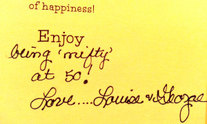 of happiness!
Enjoy
being 'nifty'
at 50!
Love.... Louise & George